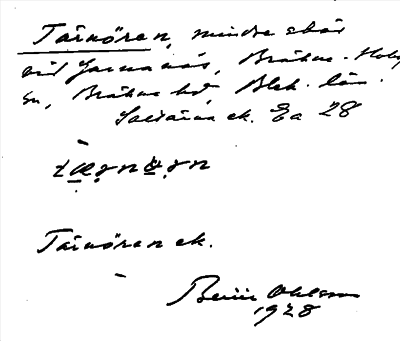 Tärnören, mindre skär
vid Garnanäs, Bräkne-Hoby
sn, Bräkne hd, Blek. län.
ek. Ea 28
tærnörn
Tärnören ek.
Ohlsson
1928